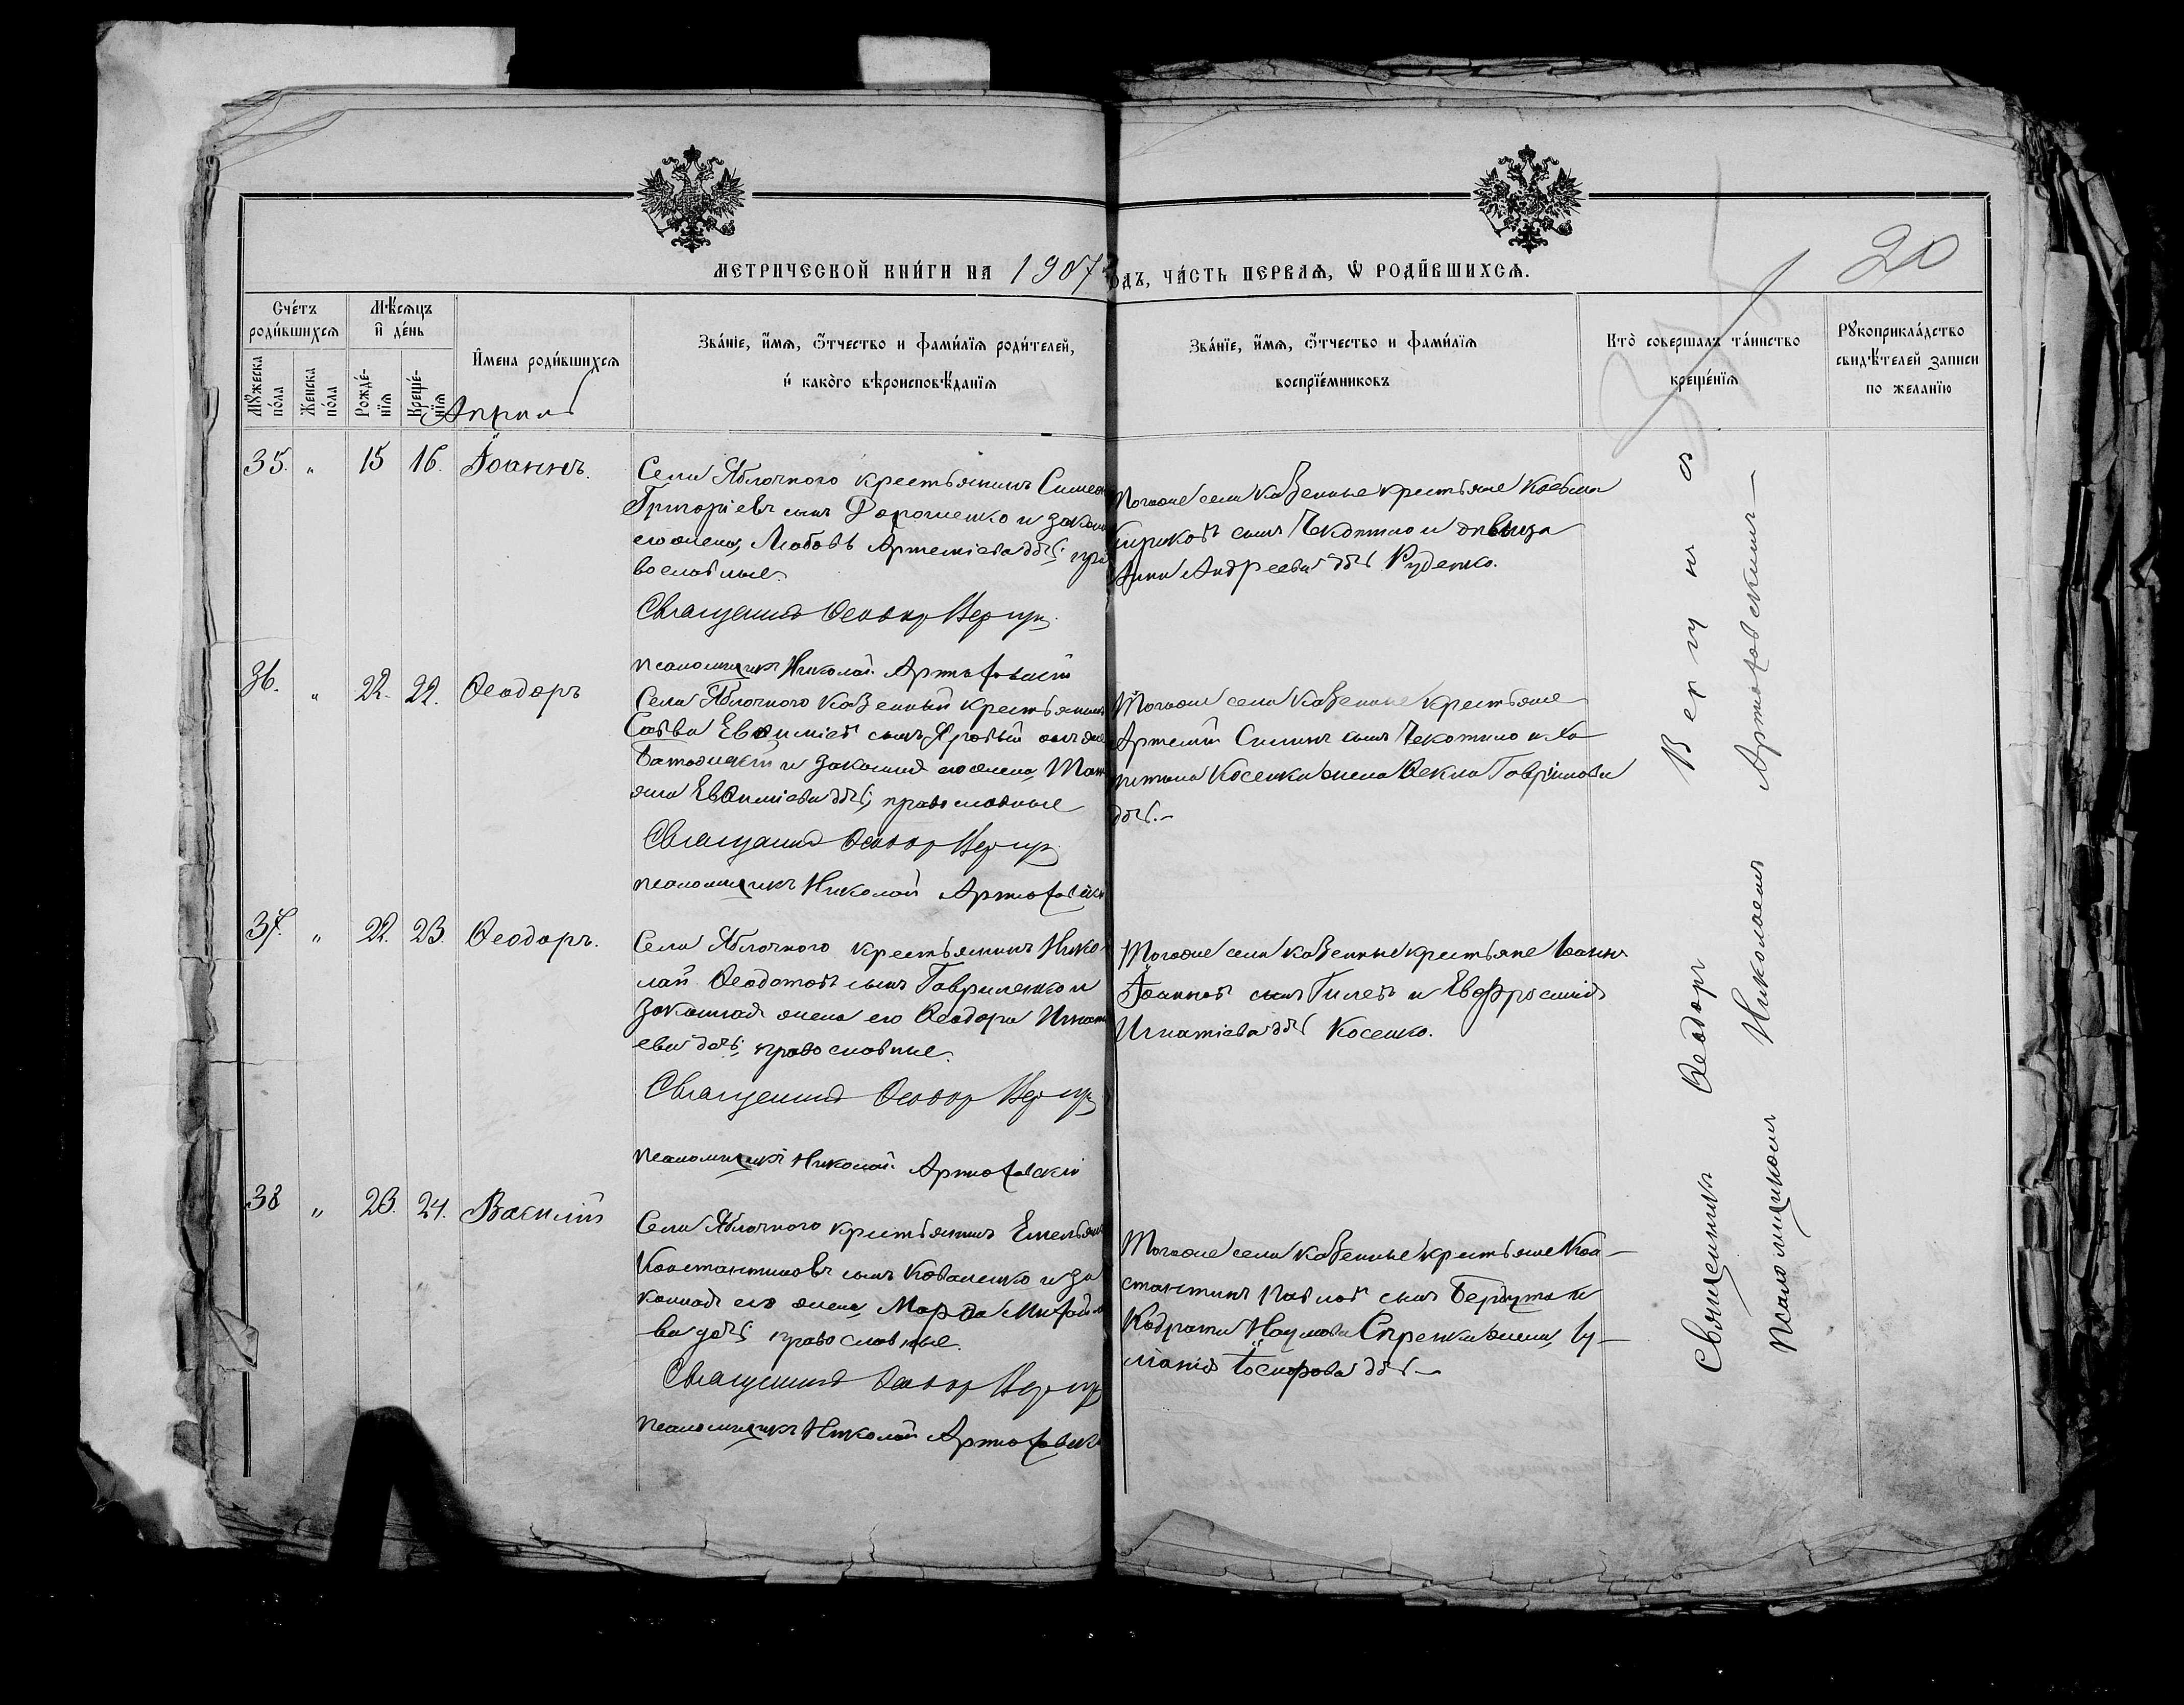 МЕТРИЧЕСКОЙ КНИ́ГИ НА 1907 ГОДЪ, ЧА́СТЬ ПЕРВАЯ, Ѿ РОДИ́ВШИХСЯ.
20
Сче́тъ роди́вшихся
Мꙋжеска по́ла
Женска по́ла
Мѣ́сяцъ и҆ де́нь
Рожде́нїя
Креще́нїя
И҆мена роди́вшихся
Зва́нїе, и҆́мя, ѻ҆́тчество и фами́лїя роди́телей,
и҆ како́го вѣроисповѣ́данїя
Зва́нїе, и҆́мя, ѻ҆́тчество и фами́лїя
воспрїе́мниковъ
Кто̀ совершалъ та́инство
креще́нїя
Рꙋкоприкла́дство
свидѣ́телей записи
по жела́нїю
Апрель
35. " 15 16. Іоаннъ.
Села Яблочного крестьянинъ Симеонъ
Григоріевъ сынъ Дорошенко и закон
его жена, Любовь Артеміева дчь; пра
вославные.
Священникъ Ѳеодоръ Вергун
Псаломщикъ Николай Артюховскій
Тогоже села казенные крестьяне Косьма
Кириковъ сынъ Чекотило и дѣвица
Анна Андреева дчь Руденко.
36. " 22. 22. Ѳеодоръ
Села Яблочного казенный крестьянинъ
Савва Евѳиміевъ сынъ Яровый онъ же
и законная его жена, Тать
яна Евѳиміева дчь, православные
Священникъ Ѳеодоръ Вергун
Псаломщикъ Николай Артюховскій
Тогоже села казенные крестьяне
Артемій Силинъ сынъ Чекотило и Ха
ритона Косенка жена Ѳекла Гавріилова
дчь.—
37. " 22. 23. Ѳеодоръ.
Села Яблочного крестьянинъ Нико
лай Ѳеодотовъ сынъ Гавриленко и
законная жена его Ѳеодора Игнать
ева дчь; православные.
Священникъ Ѳеодоръ Вергун
Псаломщикъ Николай Артюховскій
Тогоже села казенные крестьяне Іоаннъ
Іоанновъ сынъ Гилевъ и Евфросинія
Игнатіева дчь Косенко.
38 " 23. 24. Василій
Села Яблочного крестьянинъ Емельянъ
Константиновъ сынъ Коваленко и за
конная его жена, Марѳа Михайло
ва дчь православные.
Священникъ Ѳеодоръ Вергун
Псаломщикъ Николай Артюховск
Тогоже села казенные крестьяне Кон—
стантинъ Павловъ сынъ Бергута и
Кодрата Наумова жена, Іу—
ліанія дчь—
Священникъ Ѳеодоръ Вергунъ съ
Псаломщикомъ Николаемъ Артюховскимъ—